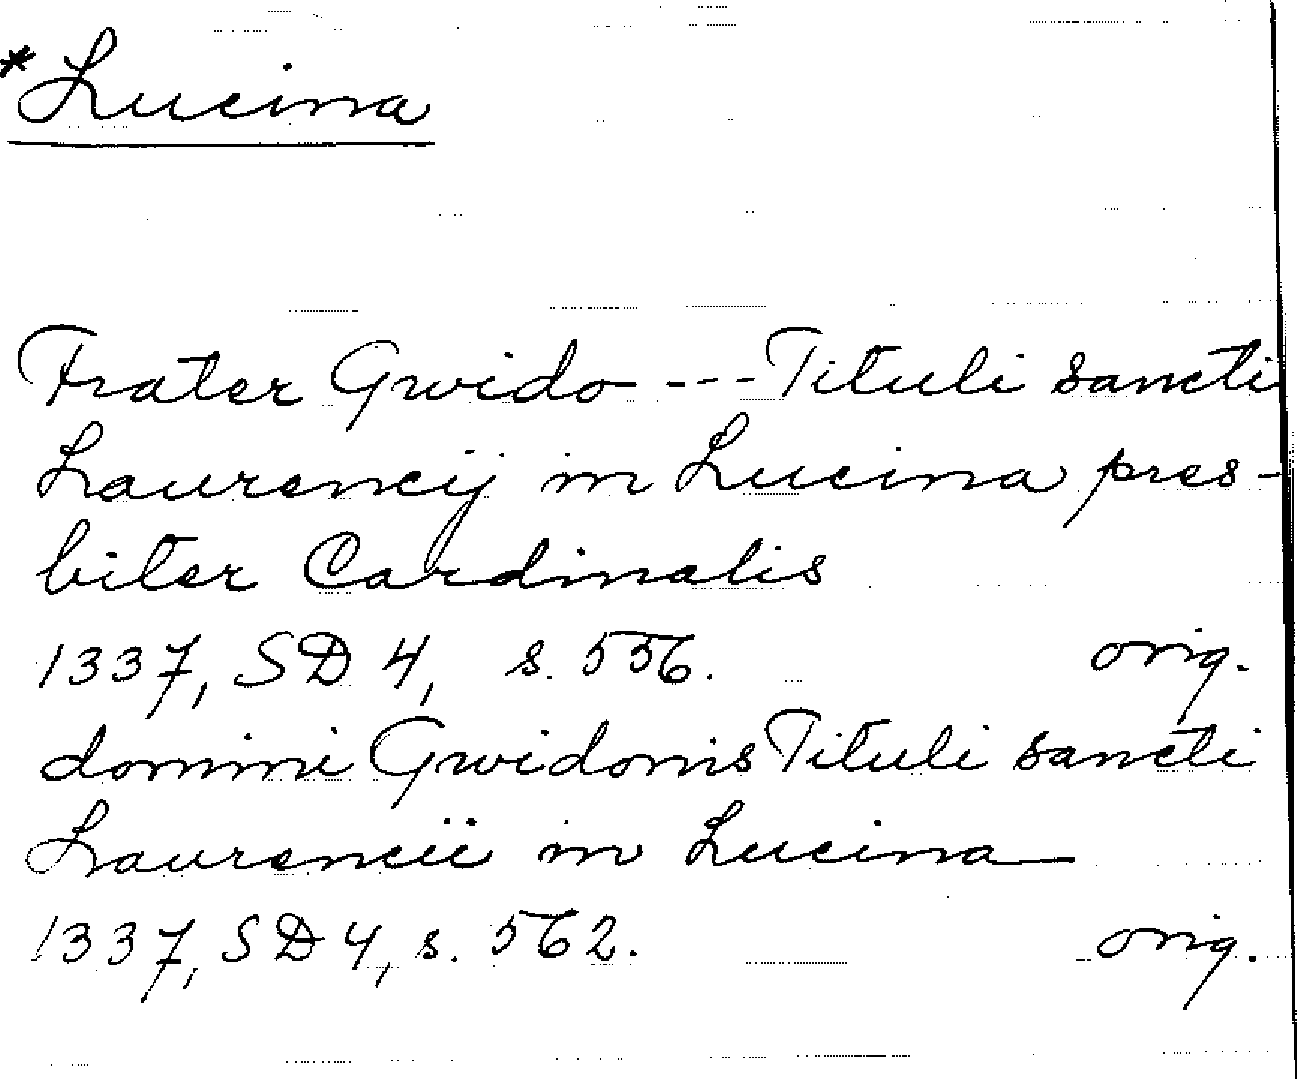 *Lucina
Frater Gwido --- Tituli sancti
Laurencij in Lucina pres-
biter Cardinalis
1337, SD 4, s. 556. orig.
domini Gwidonis Tituli sancti
Laurencii in Lucina
1337, SD 4, s. 562. orig.